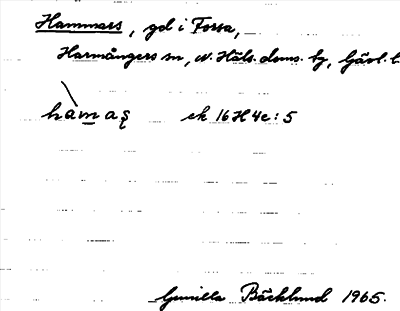 Hammars, gd i Forsa,
Harmångers sn, n. Häls. doms. by, Gävl. l.
hàmaş ek 16H4e:5
Gunilla Bäcklund 1965.